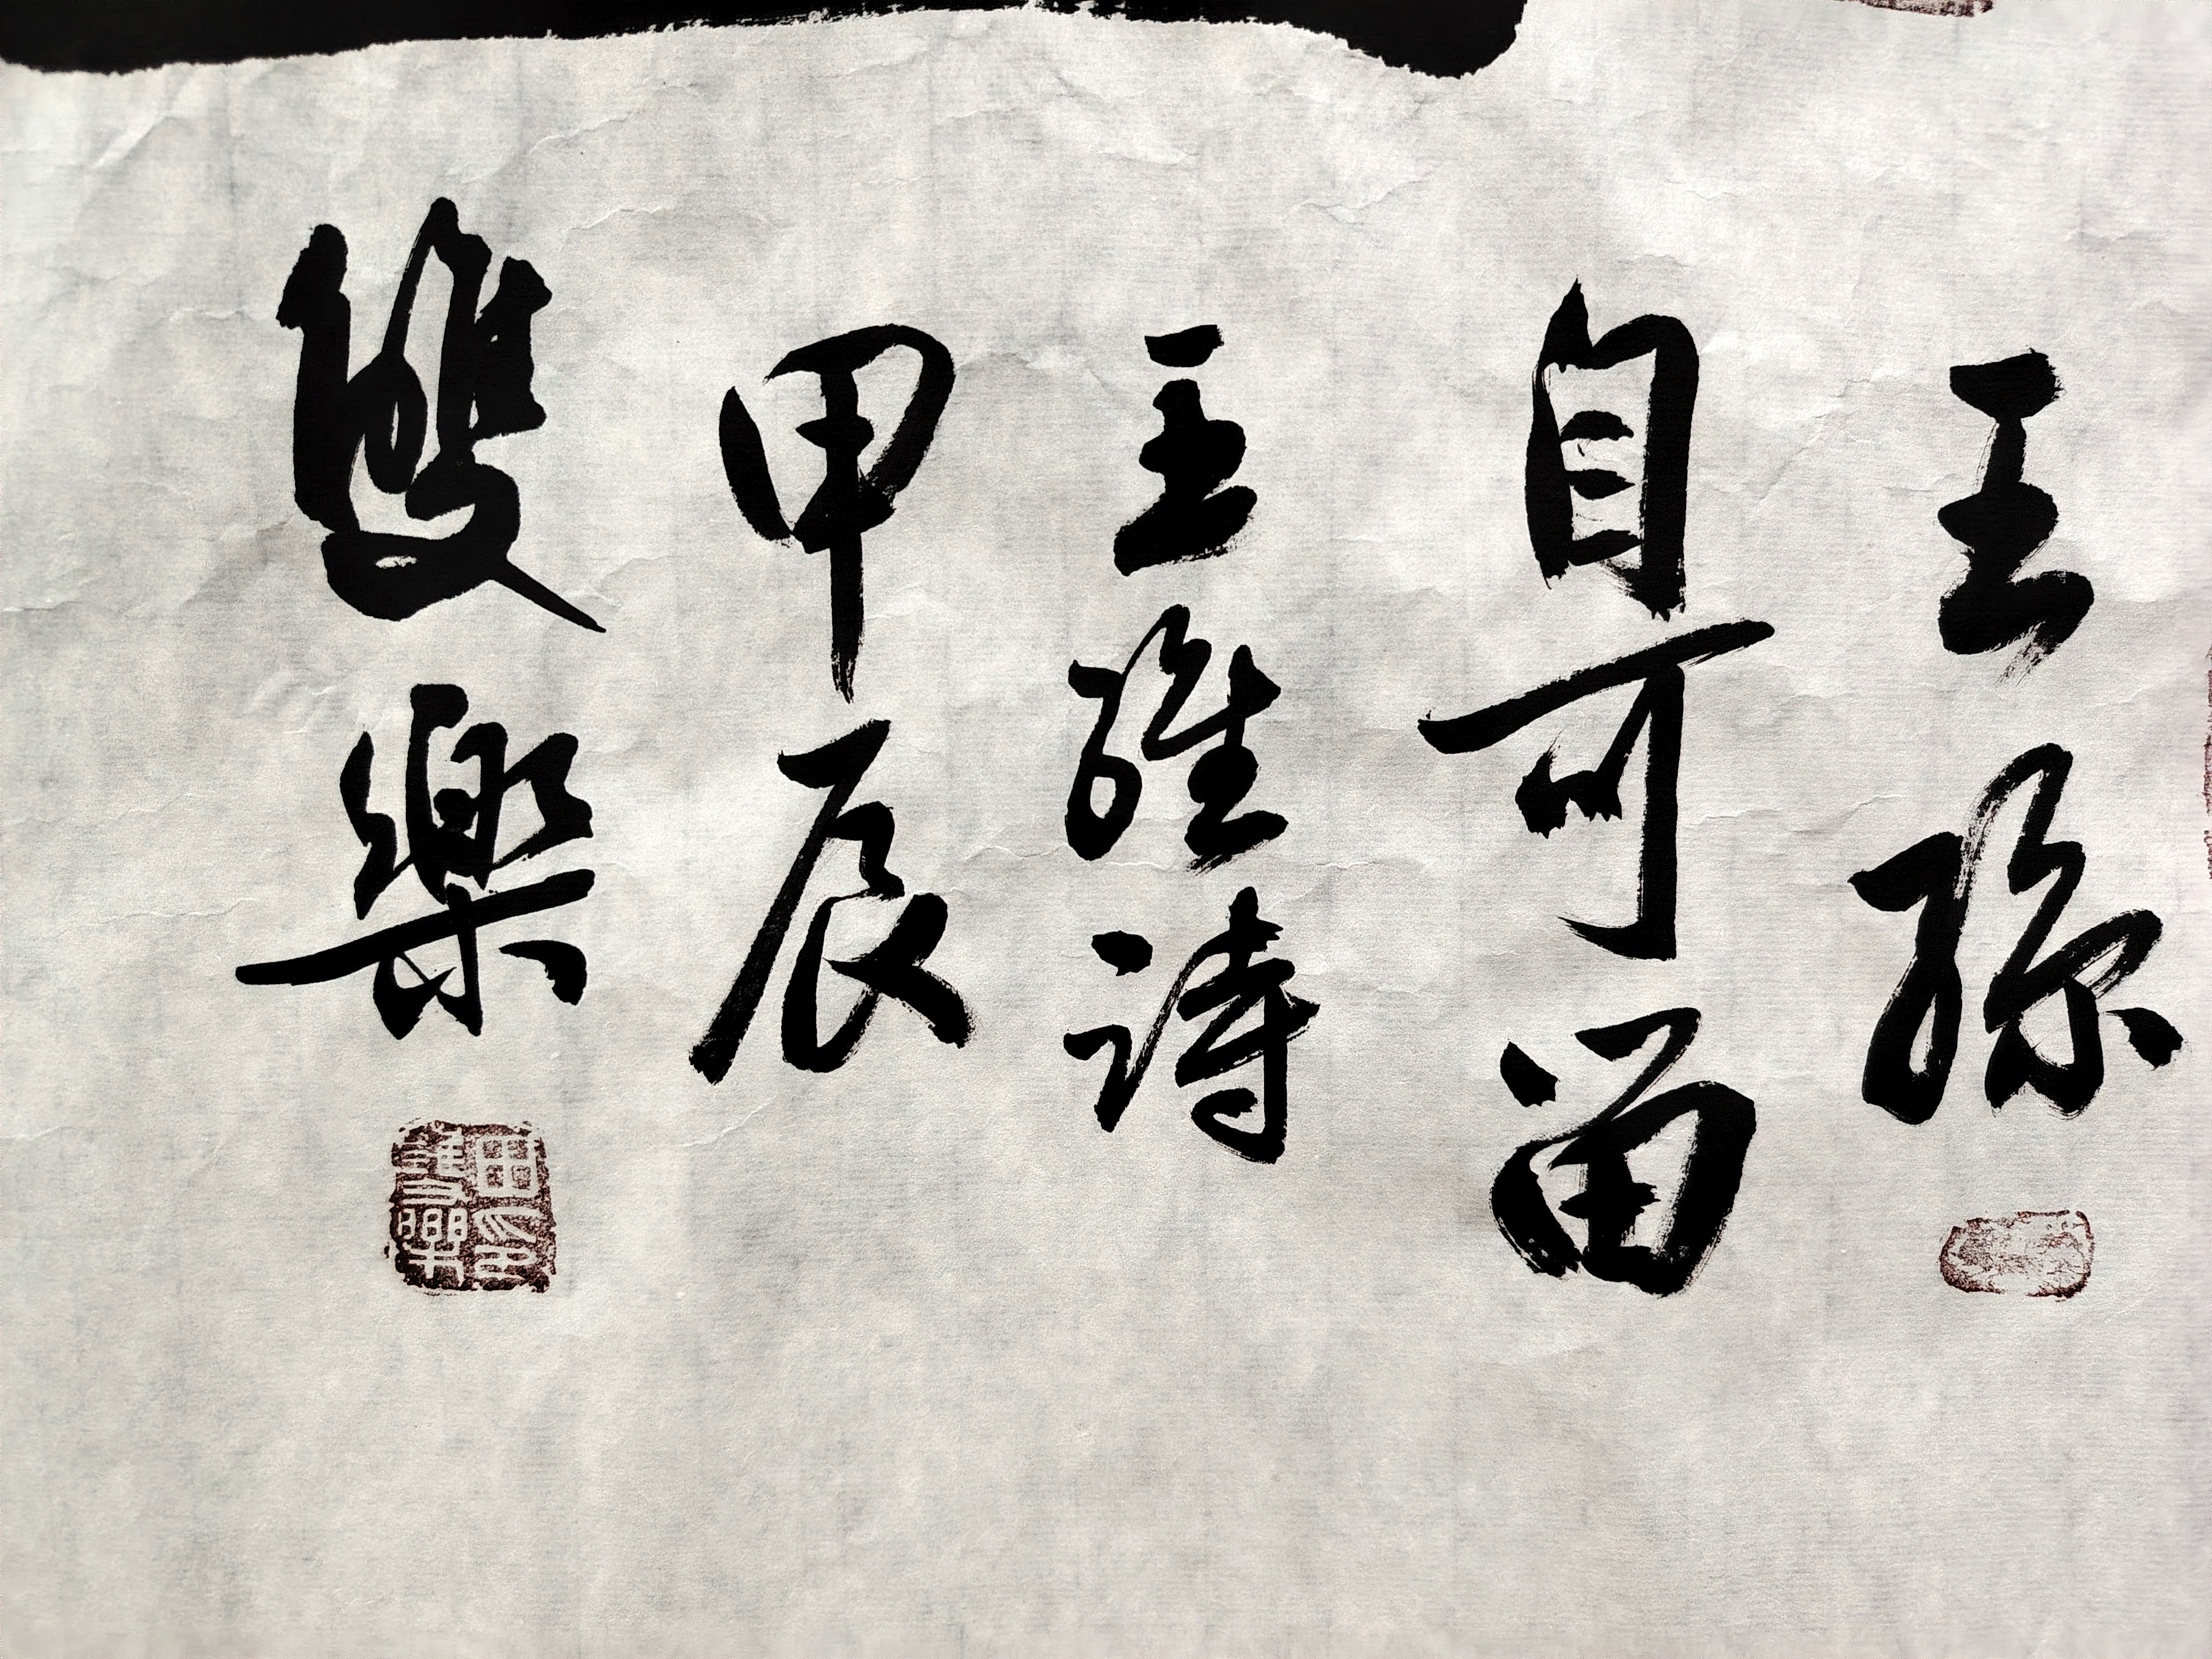 王孫
自可留
王維詩
甲辰
雙樂